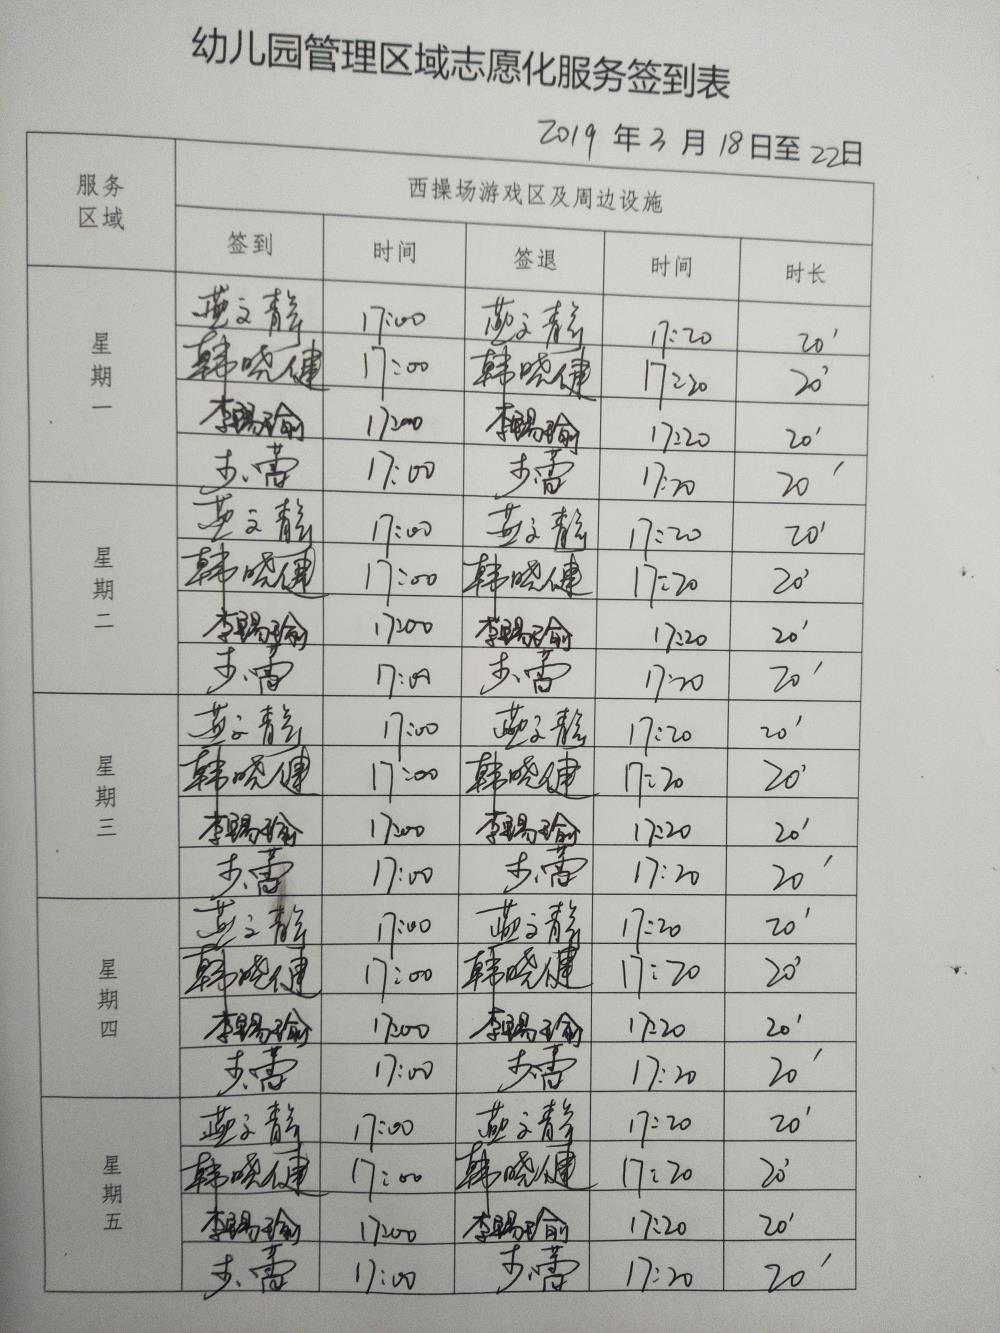 幼儿园管理区域志愿化服务签到表
2019年3月18日至22日
服务区域 西操场游戏区及周边设施
签到 时间 签退 时间 时长
星期一
燕文静 17:00 燕文静 17:20 20'
韩晓健 17:00 韩晓健 17:20 20'
李赐瑜 17:00 李赐瑜 17:20 20'
步蕾 17:00 步蕾 17:20 20'
星期二
燕文静 17:00 燕文静 17:20 20'
韩晓健 17:00 韩晓健 17:20 20'
李赐瑜 17:00 李赐瑜 17:20 20'
步蕾 17:00 步蕾 17:20 20'
星期三
燕文静 17:00 燕文静 17:20 20'
韩晓健 17:00 韩晓健 17:20 20'
李赐瑜 17:00 李赐瑜 17:20 20'
步蕾 17:00 步蕾 17:20 20'
星期四
燕文静 17:00 燕文静 17:20 20'
韩晓健 17:00 韩晓健 17:20 20'
李赐瑜 17:00 李赐瑜 17:20 20'
步蕾 17:00 步蕾 17:20 20'
星期五
燕文静 17:00 燕文静 17:20 20'
韩晓健 17:00 韩晓健 17:20 20'
李赐瑜 17:00 李赐瑜 17:20 20'
步蕾 17:00 步蕾 17:20 20'